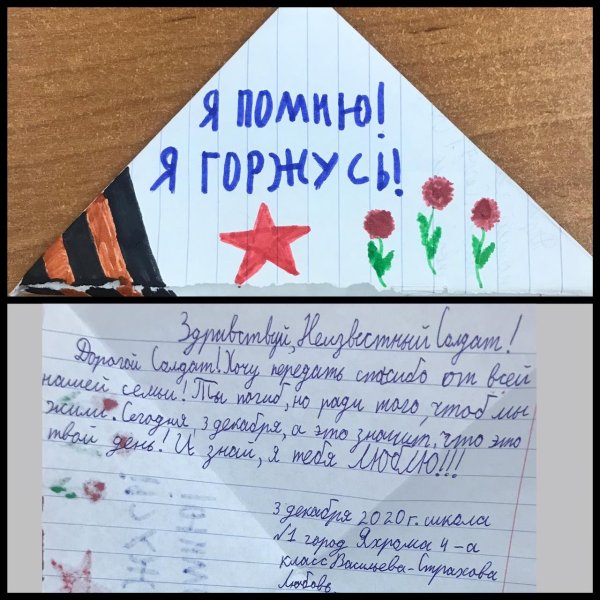 Я ПОМНЮ!
Я ГОРЖУСЬ!
Здравствуй, Неизвестный Солдат!
Дорогой Солдат! Хочу передать спасибо от всей
нашей семьи! Ты погиб, но ради того, чтоб мы
жили. Сегодня, 3 декабря, а это значит, что это
твой день! И знай, я тебя ЛЮБЛЮ!!!
3 декабря 2020 г. школа
№1 город Яхрома 4-а
класс Васильева-Страхова
Любовь.